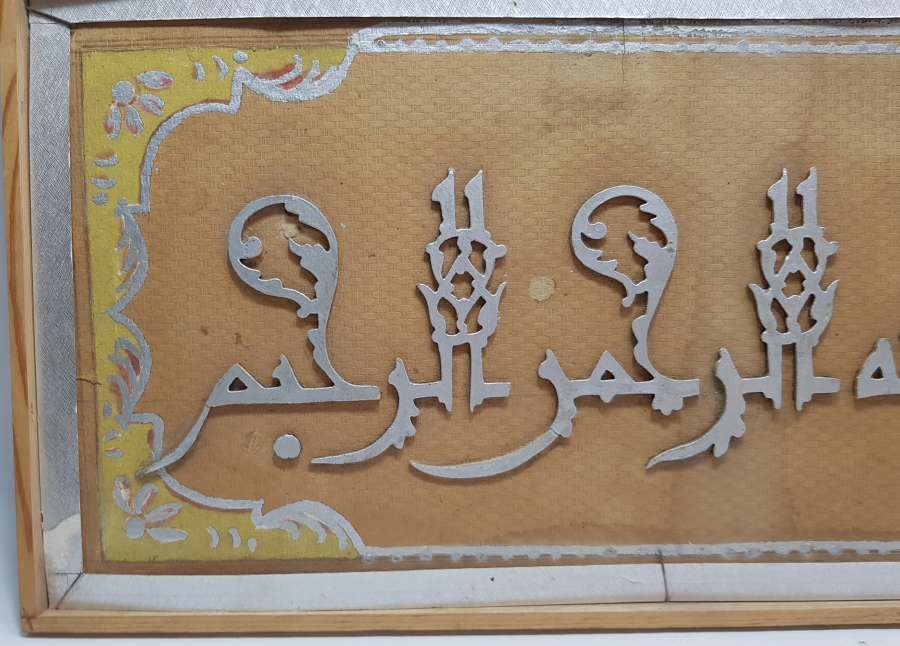 ﻪ الرحمن الرحيم